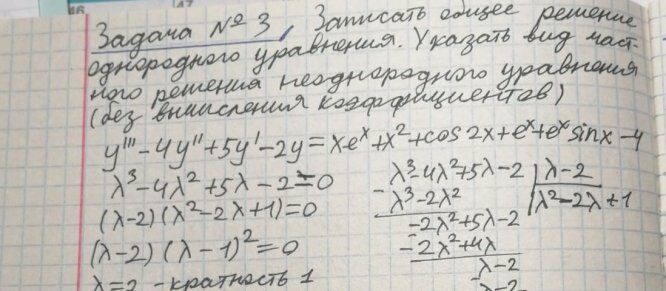 46
47
Задача № 3. Записать общее решение
однородного уравнения. Указать вид част-
ного решения неоднородного уравнения
(без вычисления коэффициентов)
y''' - 4y'' + 5y' - 2y = x·eˣ + x² + cos 2x + eˣ + eˣ sin x - 4
λ³ - 4λ² + 5λ - 2 = 0
(λ-2)(λ² - 2λ + 1) = 0
(λ-2)(λ-1)² = 0
λ=2 - кратность 1
λ³ - 4λ² + 5λ - 2 | λ - 2
- λ³ - 2λ² | λ² - 2λ + 1
-2λ² + 5λ - 2
- -2λ² + 4λ
λ - 2
- λ - 2